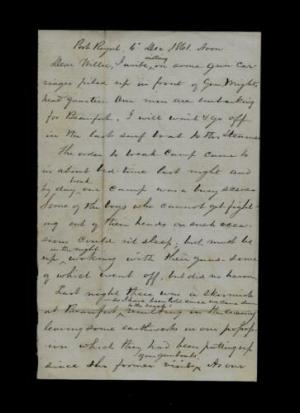 Port Royal, 6th Dec 1861. Noon
Dear Willie, I write, sitting on some gun car
riages piled up in front of Gen Wright's
head quarters. Our men are embarking
for Beaufort. I will wait & go off
in the last surf boat to the Steamer
The order to break camp came to
us about bed time last night and
by day break our camp was a busy scene
Some of the boys who cannot get fight-
ing out of their heads on such occa
sions could n't sleep, but must be
up in the night working with their guns some
of which went off, but did no harm.
Last night there was a skirmish
at Beaufort, resulting in the enemy
leaving some earthworks in our
on which they had been putting up
since the gun boats former visits. As our